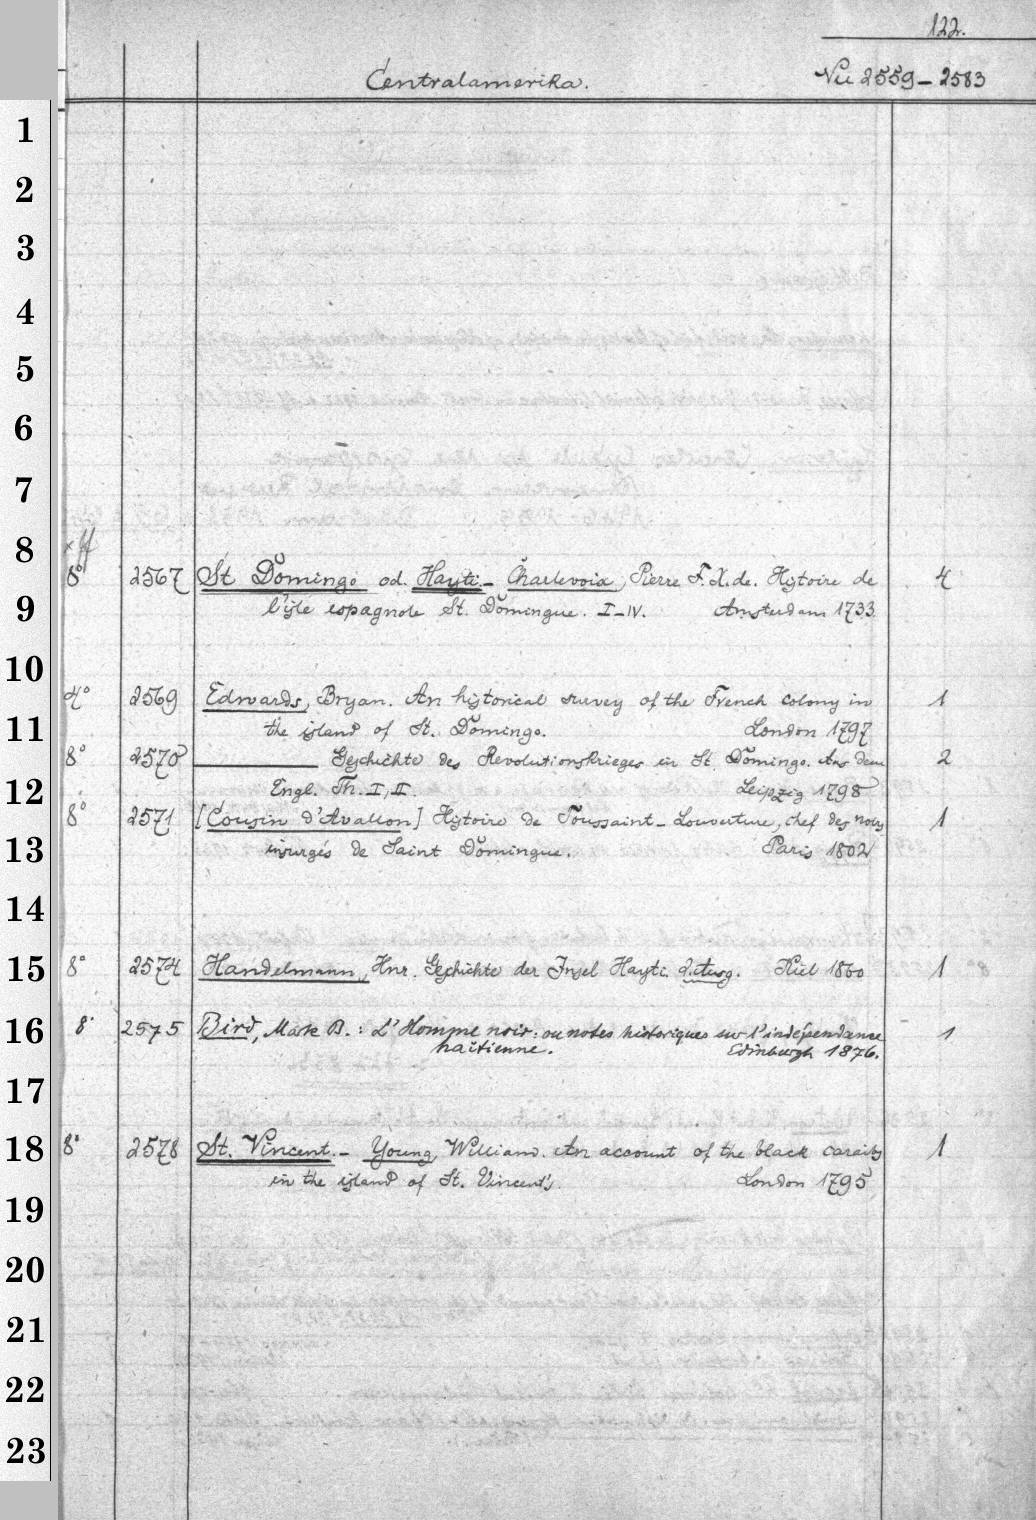 122.
Centralamerika. Nu 2559-2583
1
2
3
4
5
6
7
8
8° 2567 St Domingo od. Hayti. - Charlevoix, Pierre F. X. de. Histoire de 4
9 l'isle espagnole St. Domingue. I-IV. Amsterdam 1733
10
4° 2569 Edwards, Bryan. An historical survey of the French colony in 1
11 the island of St. Domingo. London 1797
8° 2570 Geschichte des Revolutionskrieges in St Domingo. Aus dem 2
12 Engl. Th. I, II. Leipzig 1798
8° 2571 [Cousin d'Avallon] Histoire de Toussaint-Louverture, chef des noirs 1
13 insurgés de Saint Domingue. Paris 1802
14
15 8° 2574 Handelmann, Hnr. Geschichte der Insel Hayti. Kiel 1860 1
16 8° 2575 Bird, Mark B.: L'Homme noir: ou notes historiques sur l'indépendance 1
haïtienne. Edinburgh 1876.
17
18 8° 2578 St. Vincent. - Young, William. An account of the black caraibs 1
19 in the island of St. Vincent's London 1795
20
21
22
23